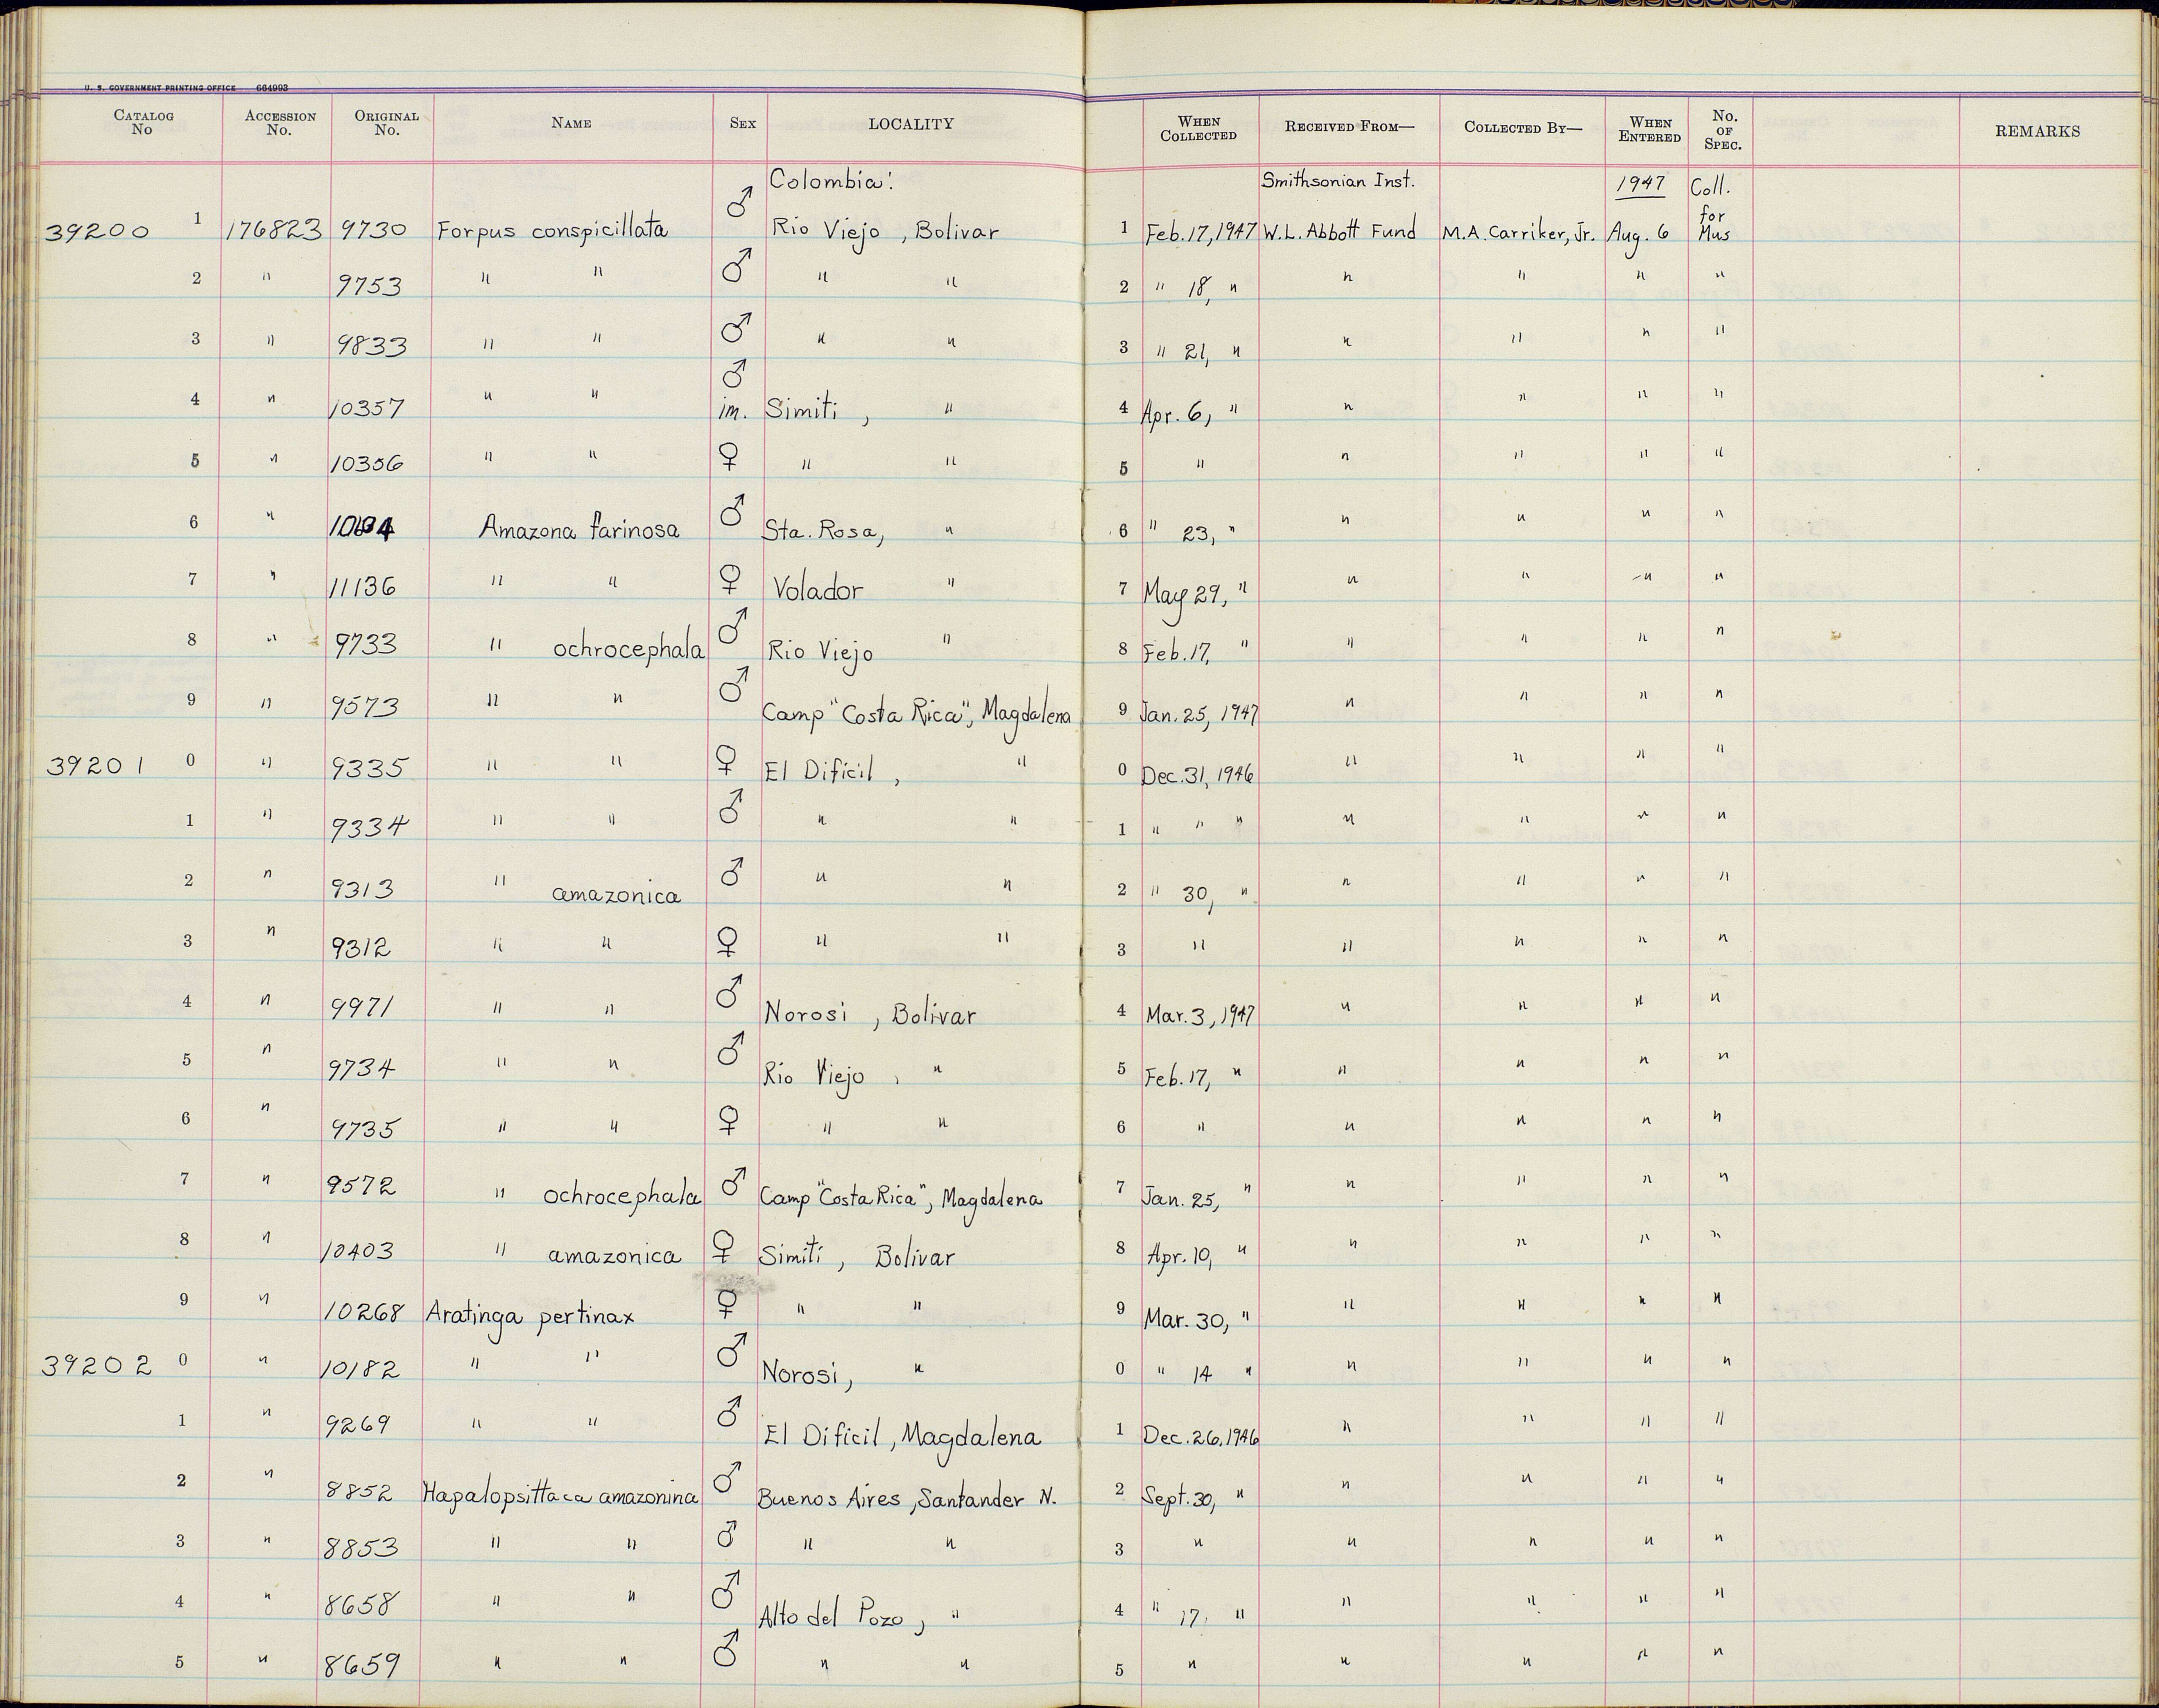 U. S. GOVERNMENT PRINTING OFFICE 664993
CATALOG No ACCESSION No. ORIGINAL No. NAME SEX LOCALITY WHEN COLLECTED RECEIVED FROM— COLLECTED BY— WHEN ENTERED No. OF SPEC. REMARKS
Colombia: Smithsonian Inst. 1947 Coll.
39200 1 176823 9730 Forpus conspicillata ♂ Rio Viejo, Bolivar 1 Feb. 17, 1947 W.L. Abbott Fund M.A. Carriker, Jr. Aug. 6 for Mus
2 " 9753 " " ♂ " " 2 " 18, " " " " "
3 " 9833 " " ♂ " " 3 " 21, " " " " "
4 " 10357 " " ♂ im. Simiti, " 4 Apr. 6, " " " " "
5 " 10356 " " ♀ " " 5 " " " " "
6 " Amazona farinosa ♂ Sta. Rosa, " 6 " 23, " " " " "
7 " 11136 " " ♀ Volador " 7 May 29, " " " " "
8 " 9733 " ochrocephala ♂ Rio Viejo " 8 Feb. 17, " " " " "
9 " 9573 " " ♂ Camp "Costa Rica", Magdalena 9 Jan. 25, 1947 " " " "
39201 0 " 9335 " " ♀ El Dificil, " 0 Dec. 31, 1946 " " " "
1 " 9334 " " ♂ " " 1 " " " " " " "
2 " 9313 " amazonica ♂ " " 2 " 30, " " " " "
3 " 9312 " " ♀ " " 3 " " " " "
4 " 9971 " " ♂ Norosi, Bolivar 4 Mar. 3, 1947 " " " "
5 " 9734 " " ♂ Rio Viejo, " 5 Feb. 17, " " " " "
6 " 9735 " " ♀ " " 6 " " " " "
7 " 9572 " ochrocephala ♂ Camp "Costa Rica", Magdalena 7 Jan. 25, " " " " "
8 " 10403 " amazonica ♀ Simiti, Bolivar 8 Apr. 10, " " " " "
9 " 10268 Aratinga pertinax ♀ " " 9 Mar. 30, " " " " "
39202 0 " 10182 " " ♂ Norosi, " 0 " 14 " " " " "
1 " 9269 " " ♂ El Dificil, Magdalena 1 Dec. 26, 1946 " " " "
2 " 8852 Hapalopsittaca amazonina ♂ Buenos Aires, Santander N. 2 Sept. 30, " " " " "
3 " 8853 " " ♂ " " 3 " " " " "
4 " 8658 " " ♂ Alto del Pozo, " 4 " 17, " " " " "
5 " 8659 " " ♂ " " 5 " " " " "